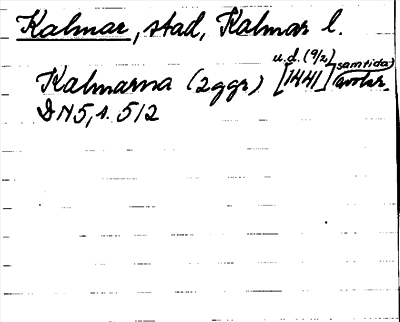 Kalmar, stad, Kalmar l.
Kalmarna (2ggr) [1441] u.d. (9/2) samtida avskr.
DN5, s. 512